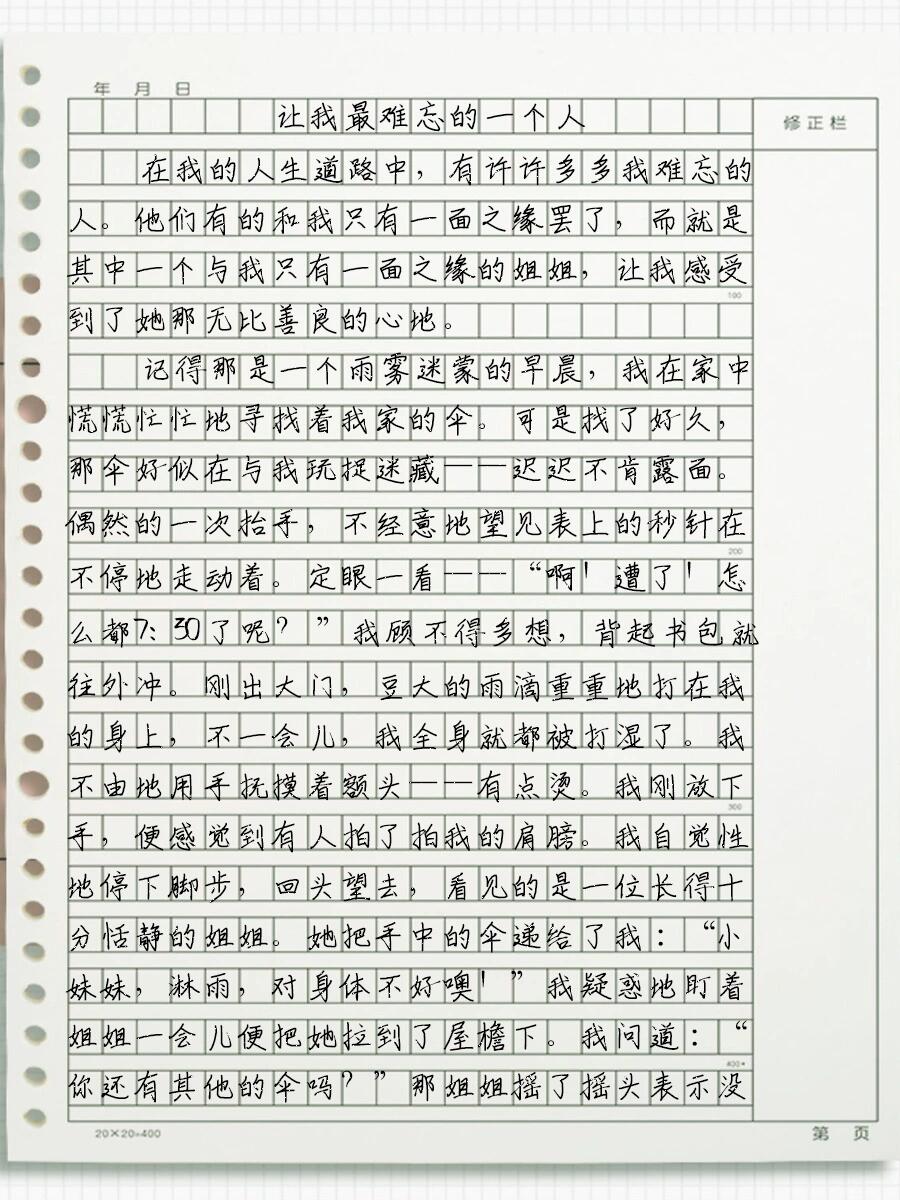 年 月 日
让我最难忘的一个人
修正栏
在我的人生道路中，有许许多多我难忘的
人。他们有的和我只有一面之缘罢了，而就是
其中一个与我只有一面之缘的姐姐，让我感受
100
到了她那无比善良的心地。
记得那是一个雨雾迷蒙的早晨，我在家中
慌慌忙忙地寻找着我家的伞。可是找了好久，
那伞好似在与我玩捉迷藏——迟迟不肯露面。
偶然的一次抬手，不经意地望见表上的秒针在
200
不停地走动着。定眼一看——“啊！遭了！怎
么都7：30了呢？”我顾不得多想，背起书包就
往外冲。刚出大门，豆大的雨滴重重地打在我
的身上，不一会儿，我全身就都被打湿了。我
不由地用手抚摸着额头——有点烫。我刚放下
300
手，便感觉到有人拍了拍我的肩膀。我自觉性
地停下脚步，回头望去，看见的是一位长得十
分恬静的姐姐。她把手中的伞递给了我：“小
妹妹，淋雨，对身体不好噢！”我疑惑地盯着
姐姐一会儿便把她拉到了屋檐下。我问道：“
400
你还有其他的伞吗？”那姐姐摇了摇头表示没
20×20=400
第 页